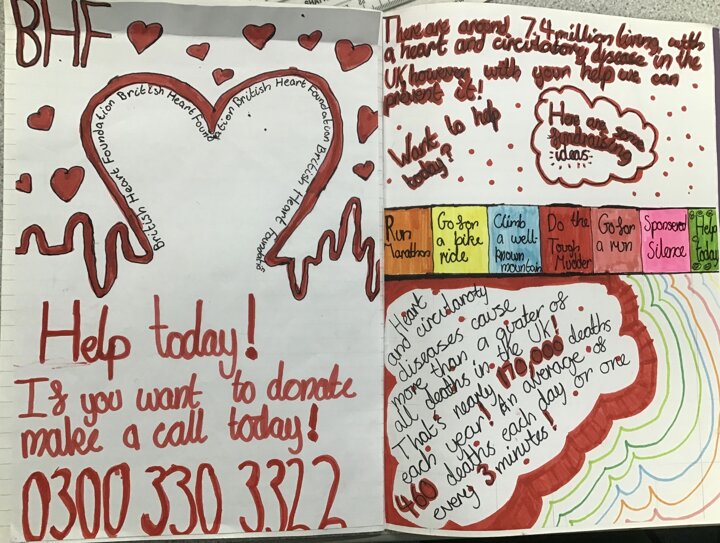 BHF
British Heart Foundation British Heart Foundation British Heart Foundation British Heart Foundation
Help today!
If you want to donate
make a call today!
0300 330 3322
There are around 7.4 million living with
a heart and circulatory disease in the
UK however with your help we can
prevent it!
Want to help
today?
Here are some
fundraising
ideas
Run
Marathon
Go for
a bike
ride
Climb
a well-
known
mountain
Do the
Tough
Mudder
Go for
a run
Sponsered
Silence
Help
Today
Heart
and circularoty
diseases cause
more than a quater of
all deaths in the UK!
That's nearly 170,000 deaths
each year! An average of
460 deaths each day or one
every 3 minutes!